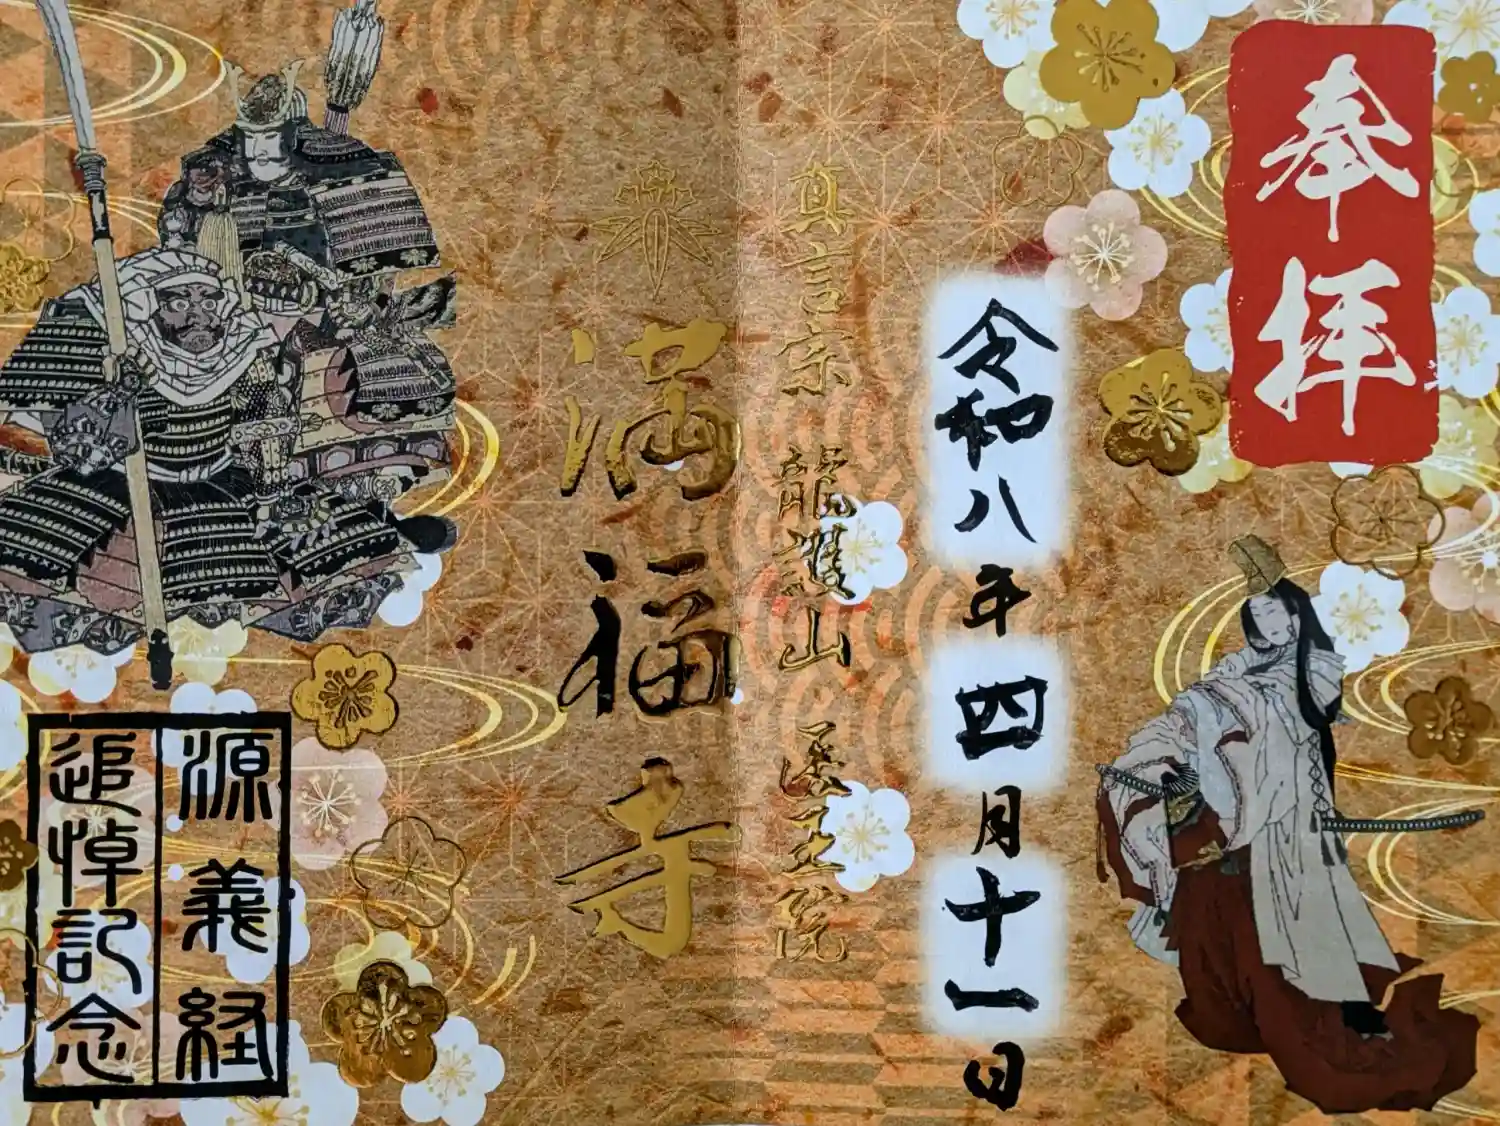 奉拝
令和八年四月十一日
真言宗 龍護山 医王院
満福寺
源義経
追悼記念